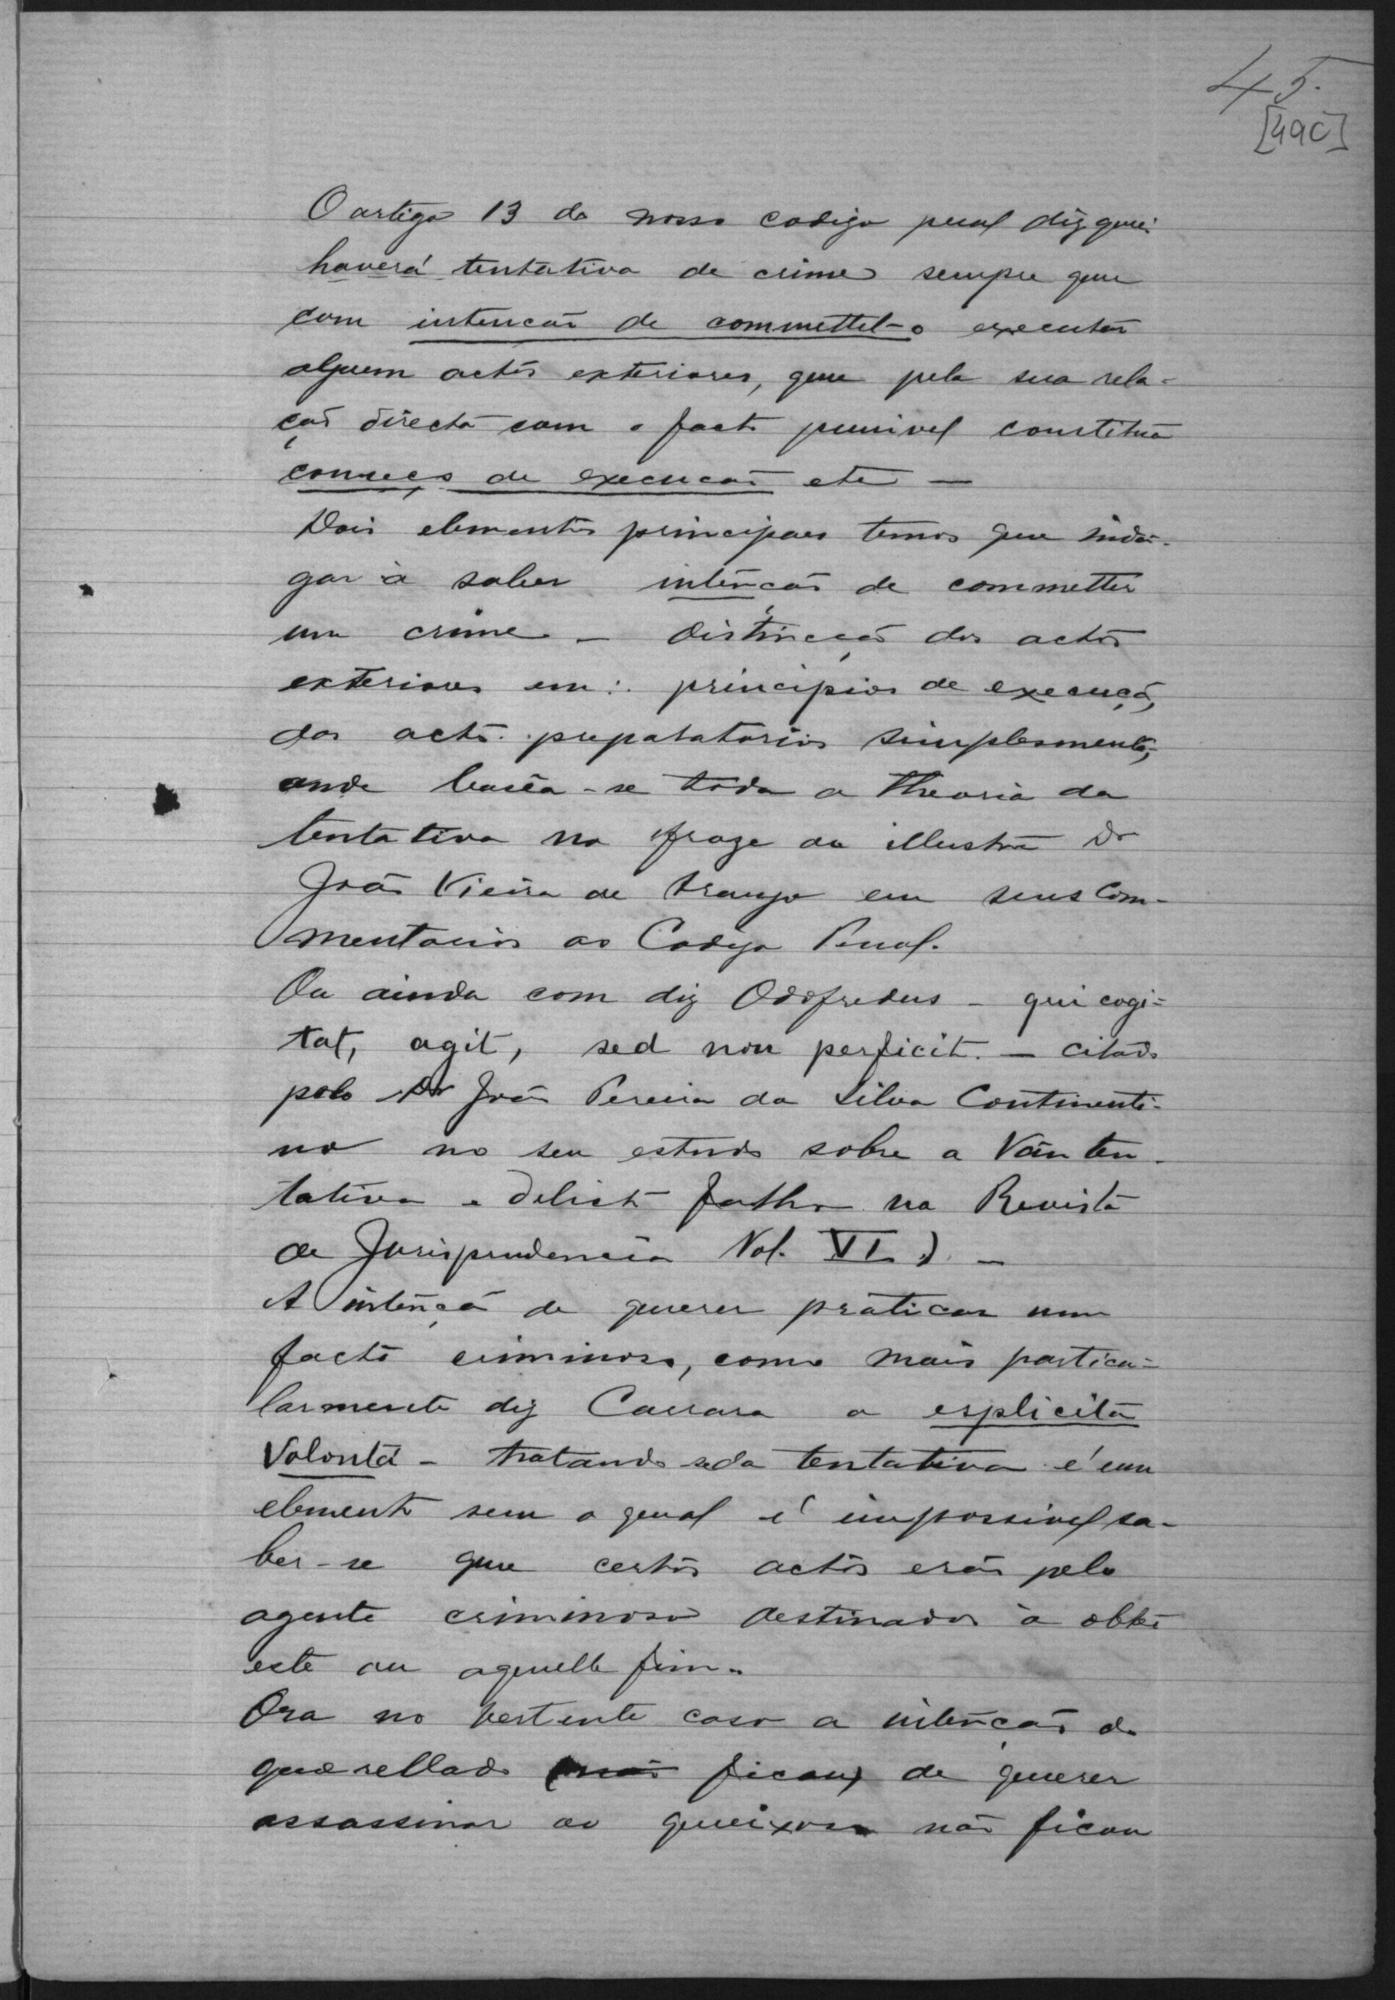 45.
[49C]
O artigo 13 do nosso codigo penal diz que:
haverá tentativa de crime sempre que
com intencão de commettel-o executar
alguem actos exteriores, que pela sua rela-
ção directa com o facto punivel constitua
começo de execucão etc —
Dois elementos principaes temos que inda-
gar à saber intencão de commetter
um crime — distincção dos actos
exteriores em: principios de execução,
dos actos preparatorios simplesmente,
onde basêa-se toda a theoria da
tentativa na fraze do illustre Dr
João Vieira de Araujo em seus Com-
mentarios ao Codigo Penal.
Ou ainda com diz Odofredus — qui cogi-
tat, agit, sed non perficit. — citado
pelo Dr João Pereira da Silva Continenti-
no no seu estudo sobre a Van ten-
tativa e delicto falho na Revista
de Jurisprudencia Vol. VI) —
A intenção de querer praticar um
facto criminoso, como mais particu-
larmente diz Carrara a esplicita
Volontá — tratando-se da tentativa é um
elemento sem o qual é impossivel sa-
ber-se que certos actos erão pelo
agente criminoso destinados à obter
este ou aquelle fim.
Ora no vertente caso a intencão do
querellado (não ficou) de querer
assassinar ao queixoso não ficou